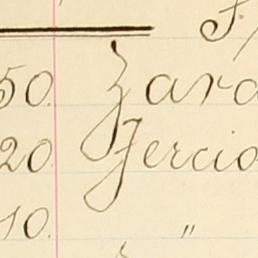 50. Zara
20. Jercio
10. "